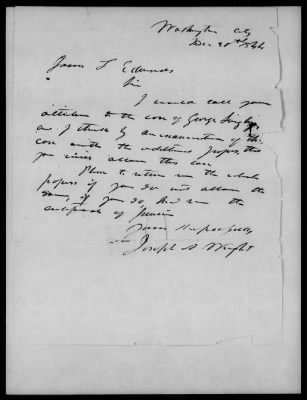 Washington City
Dec 20th 1844
James L Edwards
Sir
I would call your
attention to the case of George
as I think by an examination of the
case with the additional papers, that
you will allow this case.
Please to return me the whole
papers if you do not allow the
same, if you do, send me the
certificate of Pension
Yours Respectfully
Joseph A Wright